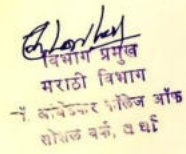 विभाग प्रमुख
मराठी विभाग
डॉ. आंबेडकर कॉलेज ऑफ
सोशल वर्क, वर्धा